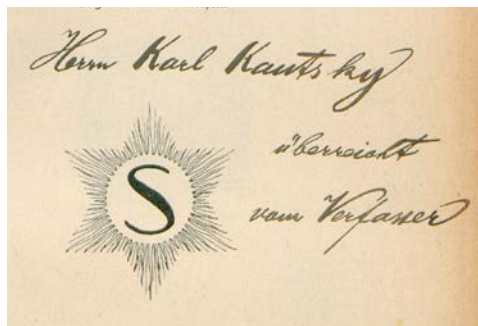 Herrn Karl Kautsky
überreicht
vom Verfasser
S